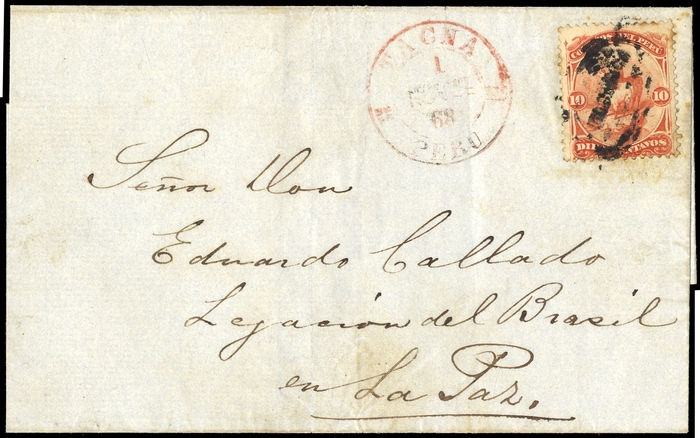 TACNA
1
68
PERU
CORREOS DEL PERU
10 10
DIEZ CENTAVOS
Señor Don
Eduardo Callado
Legación del Brasil
en La Paz.